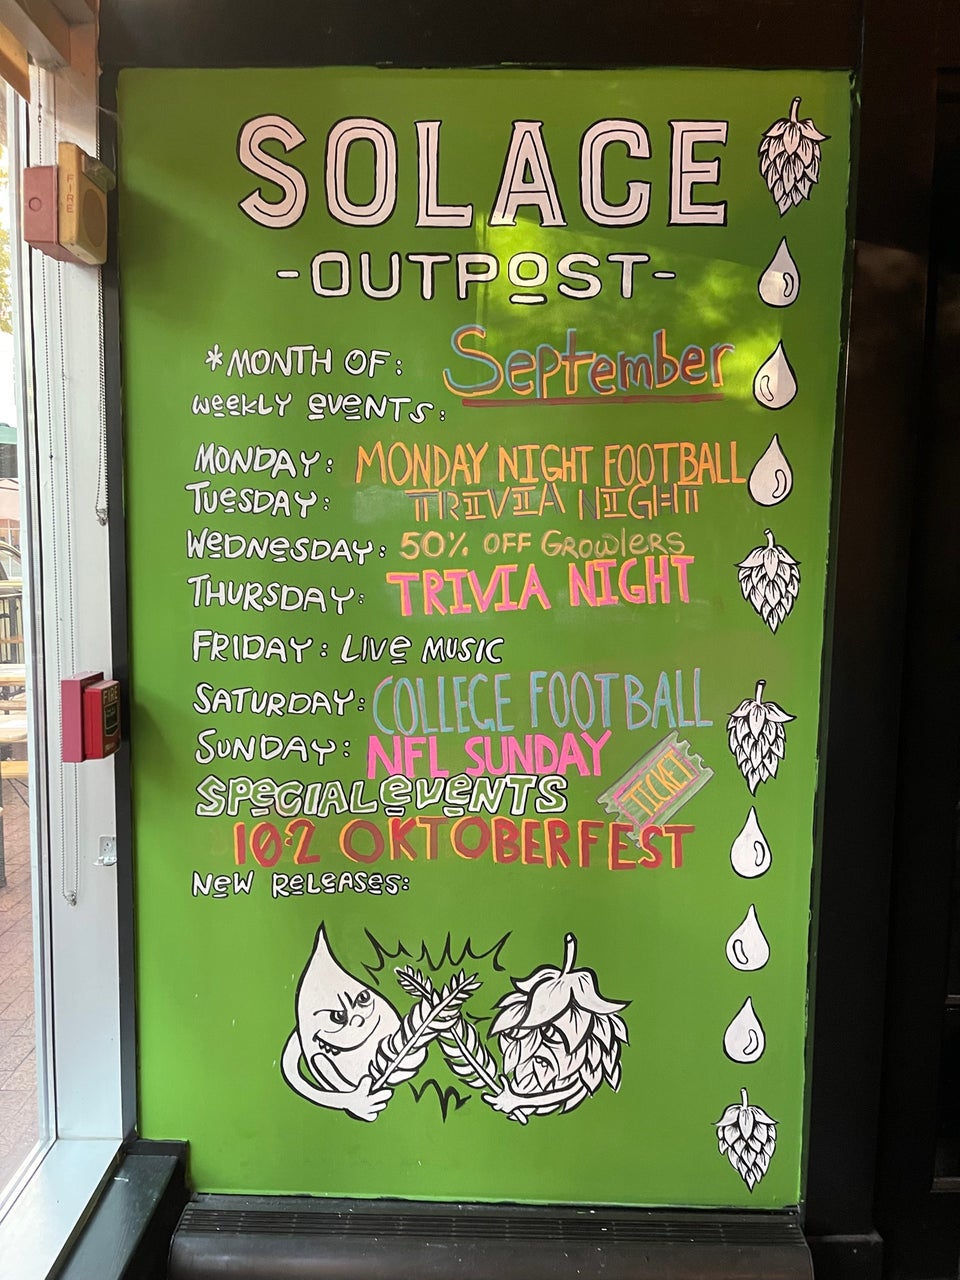 SOLACE
-OUTPOST-
*MONTH OF: September
WEEKLY EVENTS:
MONDAY: MONDAY NIGHT FOOTBALL
TUESDAY: TRIVIA NIGHT
WEDNESDAY: 50% OFF GROWLERS
THURSDAY: TRIVIA NIGHT
FRIDAY: LIVE MUSIC
SATURDAY: COLLEGE FOOTBALL
SUNDAY: NFL SUNDAY
SPECIAL EVENTS
TICKET
10:2 OKTOBERFEST
NEW RELEASES:
FIRE
FIRE